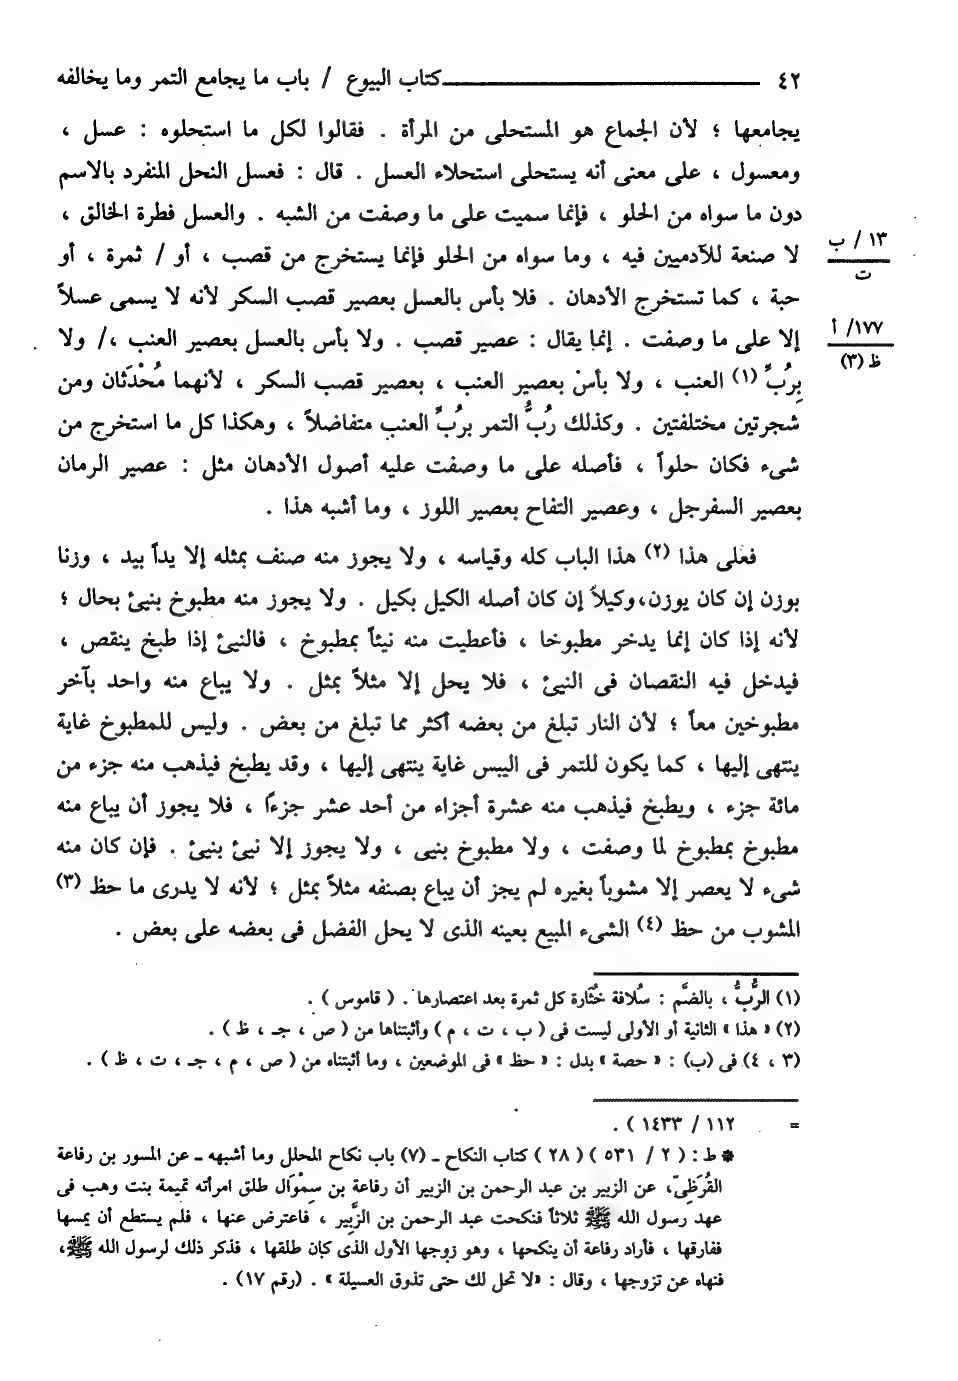 ٤٢ ــــــ كتاب البيوع / باب ما يجامع التمر وما يخالفه
يجامعها ؛ لأن الجماع هو المستحلى من المرأة . فقالوا لكل ما استحلوه : عسل ،
ومعسول ، على معنى أنه يستحلى استحلاء العسل . قال : فعسل النحل المنفرد بالاسم
دون ما سواه من الحلو ، فإنما سميت على ما وصفت من الشبه . والعسل فطرة الخالق ،
لا صنعة للآدميين فيه ، وما سواه من الحلو فإنما يستخرج من قصب ، أو / ثمرة ، أو
١٣ / ب
ت
حبة ، كما تستخرج الأدهان . فلا بأس بالعسل بعصير قصب السكر لأنه لا يسمى عسلاً
إلا على ما وصفت . إنما يقال : عصير قصب . ولا بأس بالعسل بعصير العنب ،/ ولا
١٧٧/ أ
ظ (٣)
بِرُبِّ (١) العنب ، ولا بأس بعصير العنب ، بعصير قصب السكر ، لأنهما مُحْدَثان ومن
شجرتين مختلفتين . وكذلك رُبُّ التمر برُبِّ العنب متفاضلاً ، وهكذا كل ما استخرج من
شىء فكان حلواً ، فأصله على ما وصفت عليه أصول الأدهان مثل : عصير الرمان
بعصير السفرجل ، وعصير التفاح بعصير اللوز ، وما أشبه هذا .
فعلى هذا (٢) هذا الباب كله وقياسه ، ولا يجوز منه صنف بمثله إلا يداً بيد ، وزنا
بوزن إن كان يوزن،وكيلاً إن كان أصله الكيل بكيل . ولا يجوز منه مطبوخ بنيئ بحال ؛
لأنه إذا كان إنما يدخر مطبوخا ، فأعطيت منه نيئاً بمطبوخ ، فالنيئ إذا طبخ ينقص ،
فيدخل فيه النقصان فى النيئ ، فلا يحل إلا مثلاً بمثل . ولا يباع منه واحد بآخر
مطبوخين معاً ؛ لأن النار تبلغ من بعضه أكثر مما تبلغ من بعض . وليس للمطبوخ غاية
ينتهى إليها ، كما يكون للتمر فى اليبس غاية ينتهى إليها ، وقد يطبخ فيذهب منه جزء من
مائة جزء ، ويطبخ فيذهب منه عشرة أجزاء من أحد عشر جزءًا ، فلا يجوز أن يباع منه
مطبوخ بمطبوخ لما وصفت ، ولا مطبوخ بنيى ، ولا يجوز إلا نيئ بنيئ . فإن كان منه
شىء لا يعصر إلا مشوباً بغيره لم يجز أن يباع بصنفه مثلاً بمثل ؛ لأنه لا يدرى ما حظ (٣)
المشوب من حظ (٤) الشىء المبيع بعينه الذى لا يحل الفضل فى بعضه على بعض .
(١) الرُّبُّ ، بالضَّم : سُلافة خُثَارة كل ثمرة بعد اعتصارها . ( قاموس ) .
(٢) « هذا » الثانية أو الأولى ليست فى ( ب ، ت ، م ) وأثبتناها من ( ص ، جـ ، ظ ) .
(٣ ، ٤) فى (ب) : « حصة » بدل : « حظ » فى الموضعين ، وما أثبتناه من ( ص ، م ، جـ ، ت ، ظ ) .
= ١١٢ / ١٤٣٣ ) .
* ط : ( ٢ / ٥٣١ ) ( ٢٨ ) كتاب النكاح ـ (٧) باب نكاح المحلل وما أشبهه ـ عن المسور بن رفاعة
القُرَظِىّ، عن الزبير بن عبد الرحمن بن الزبير أن رفاعة بن سِمْوَال طلق امرأته تميمة بنت وهب فى
عهد رسول الله ﷺ ثلاثاً فنكحت عبد الرحمن بن الزَّبِير ، فاعترض عنها ، فلم يستطع أن يمسها
ففارقها ، فأراد رفاعة أن ينكحها ، وهو زوجها الأول الذى كان طلقها ، فذكر ذلك لرسول الله ﷺ،
فنهاه عن تزوجها ، وقال : «لا تحل لك حتى تذوق العسيلة » . (رقم ١٧) .